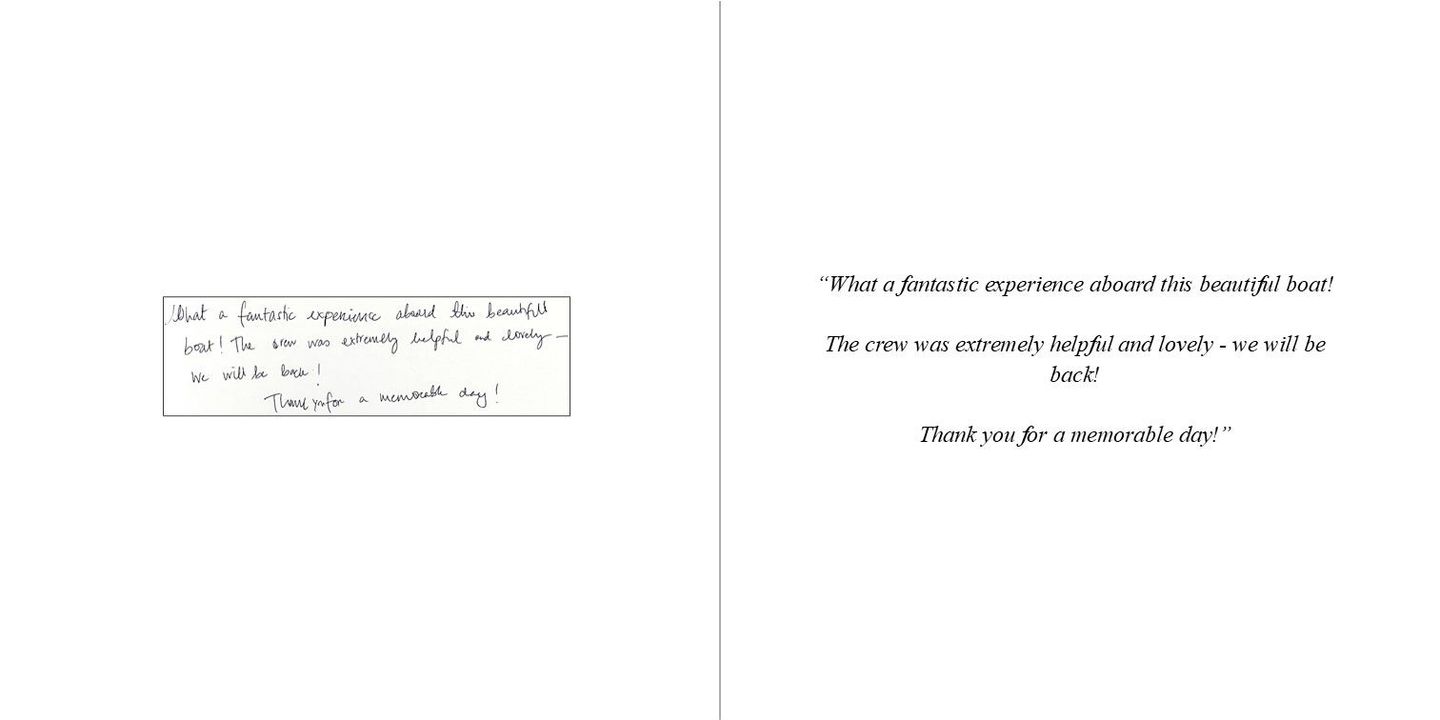 What a fantastic experience aboard this beautifull
boat! The crew was extremely helpful and lovely —
we will be back!
Thank you for a memorable day!
“What a fantastic experience aboard this beautiful boat!
The crew was extremely helpful and lovely - we will be
back!
Thank you for a memorable day!”